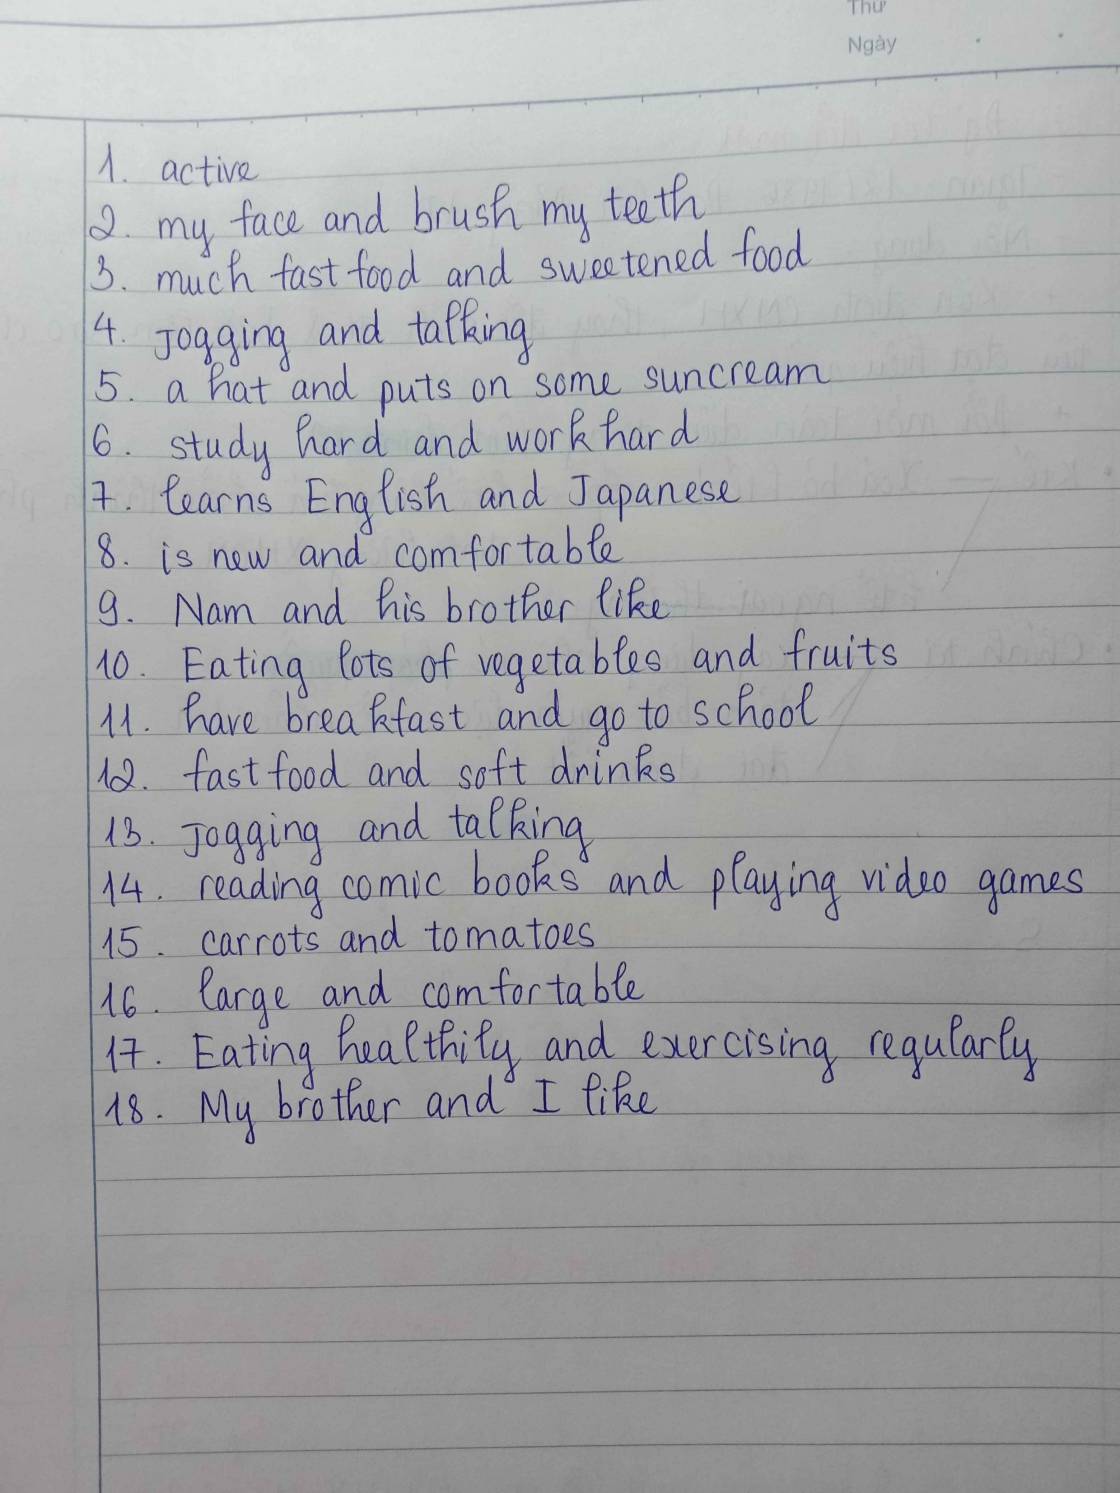 Thứ
Ngày
1. active
2. my face and brush my teeth
3. much fast food and sweetened food
4. Jogging and talking
5. a hat and puts on some suncream
6. study hard and work hard
7. learns English and Japanese
8. is new and comfortable
9. Nam and his brother like
10. Eating lots of vegetables and fruits
11. have breakfast and go to school
12. fast food and soft drinks
13. Jogging and talking
14. reading comic books and playing video games
15. carrots and tomatoes
16. large and comfortable
17. Eating healthily and exercising regularly
18. My brother and I like